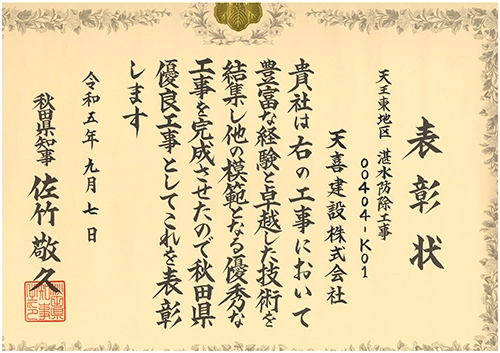 表彰状
天王東地区 湛水防除工事
00404-K01
天喜建設株式会社
貴社は右の工事において
豊富な経験と卓越した技術を
結集し他の模範となる優秀な
工事を完成させたので秋田県
優良工事としてこれを表彰
します
令和五年九月七日
秋田県知事 佐竹敬久